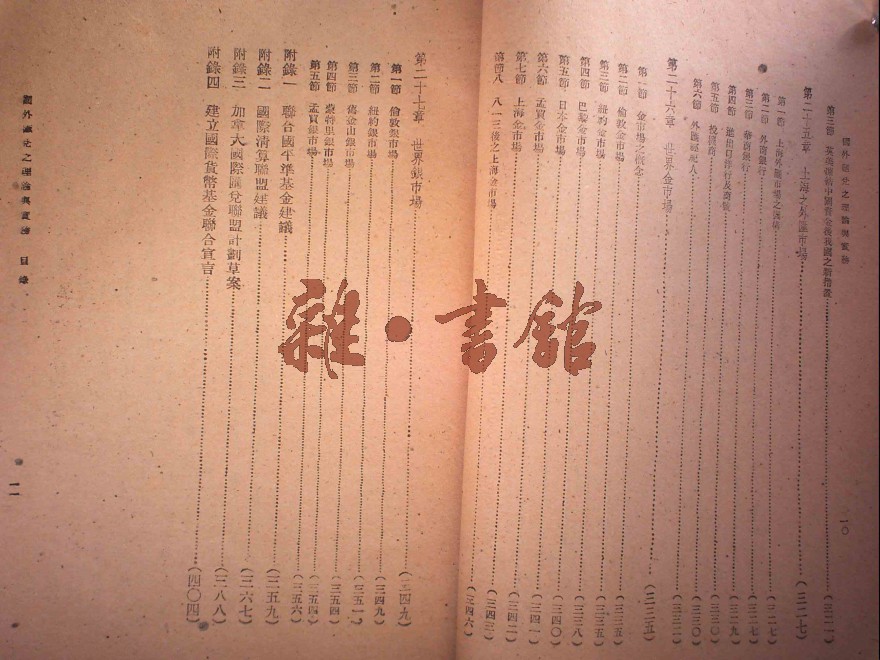 國外匯兌之理論與實務
一〇
第三節 英美凍結中國資金後我國之新措置……(三二一)
第二十五章 上海之外匯市場……(三二七)
第一節 上海外匯市場之組織……(三二七)
第二節 外商銀行……(三二七)
第三節 華商銀行……(三二八)
第四節 進出口洋行及商號……(三二九)
第五節 投機商……(三三〇)
第六節 外匯經紀人……(三三一)
第二十六章 世界金市場……(三三五)
第一節 金市場之概念……(三三五)
第二節 倫敦金市場……(三三五)
第三節 紐約金市場……(三三五)
第四節 巴黎金市場……(三三八)
第五節 日本金市場……(三四〇)
第六節 孟買金市場……(三四一)
第七節 上海金市場……(三四二)
第節八 八一三後之上海金市場……(三四六)
第二十七章 世界銀市場……(三四九)
第一節 倫敦銀市場
第二節 紐約銀市場……(三四九)
第三節 舊金山銀市場……(三五一)
第四節 蒙特里銀市場……(三五四)
第五節 孟買銀市場……(三五六)
附錄一 聯合國平準基金建議……(三五九)
附錄二 國際清算聯盟建議……(三六七)
附錄三 加拿大國際匯兌聯盟計劃草案……(三八八)
附錄四 建立國際貨幣基金聯合宣言……(四〇四)
國外匯兌之理論與實務 目錄
一一
雜·書館